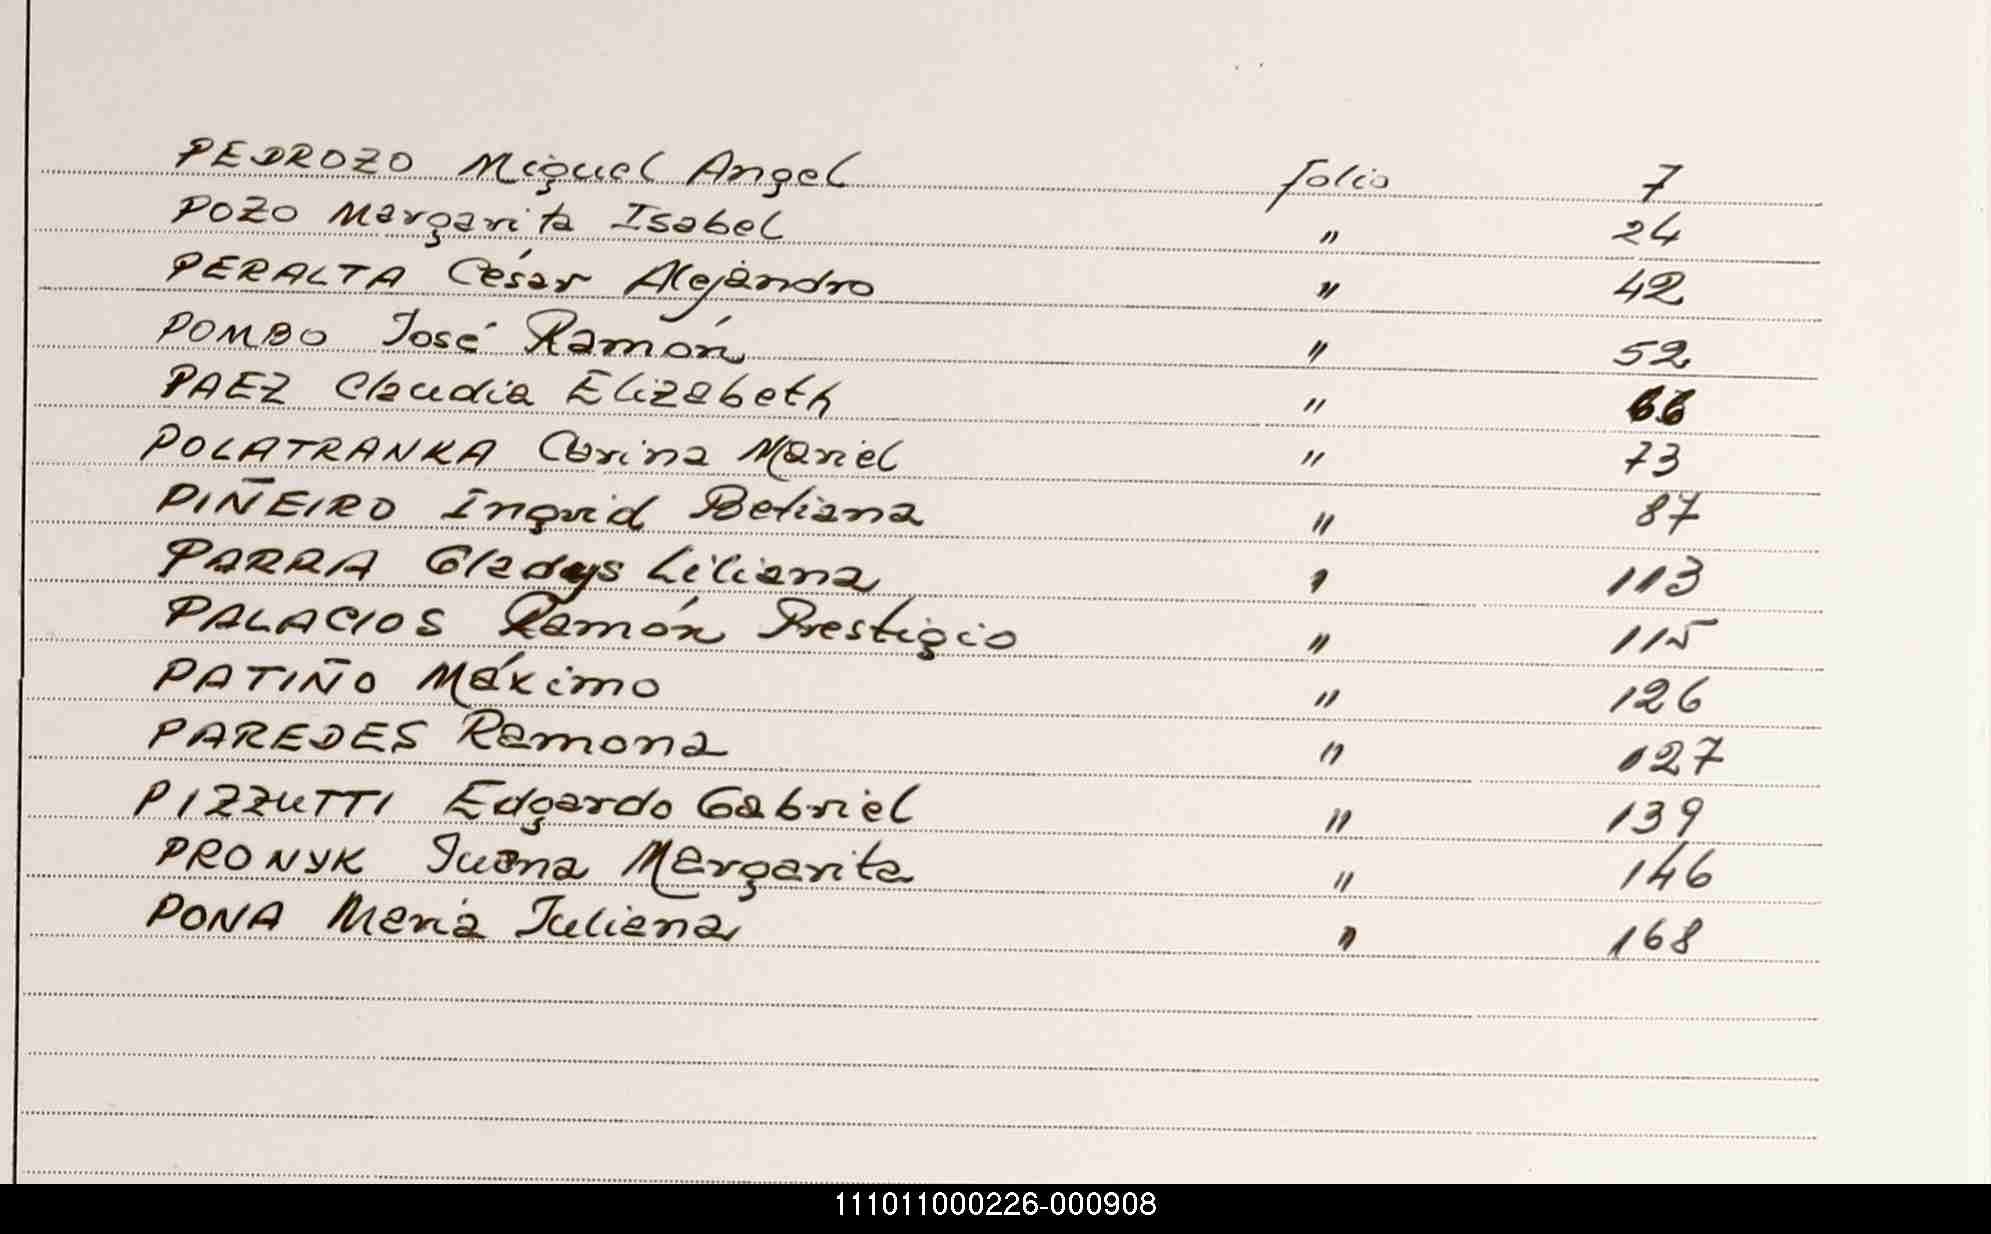 PEDROZO Miguel Angel folio 7
POZO Margarita Isabel " 24
PERALTA César Alejandro " 42
POMBO José Ramón " 52
PAEZ Claudia Elizabeth " 66
POLATRANKA Corina Mariel " 73
PIÑEIRO Ingrid Betiana " 87
PARRA Gladys Liliana " 113
PALACIOS Ramón Prestigio " 115
PATIÑO Máximo " 126
PAREDES Ramona " 127
PIZZUTTI Edgardo Gabriel " 139
PRONYK Juana Margarita " 146
PONA Maria Juliana " 168
111011000226-000908